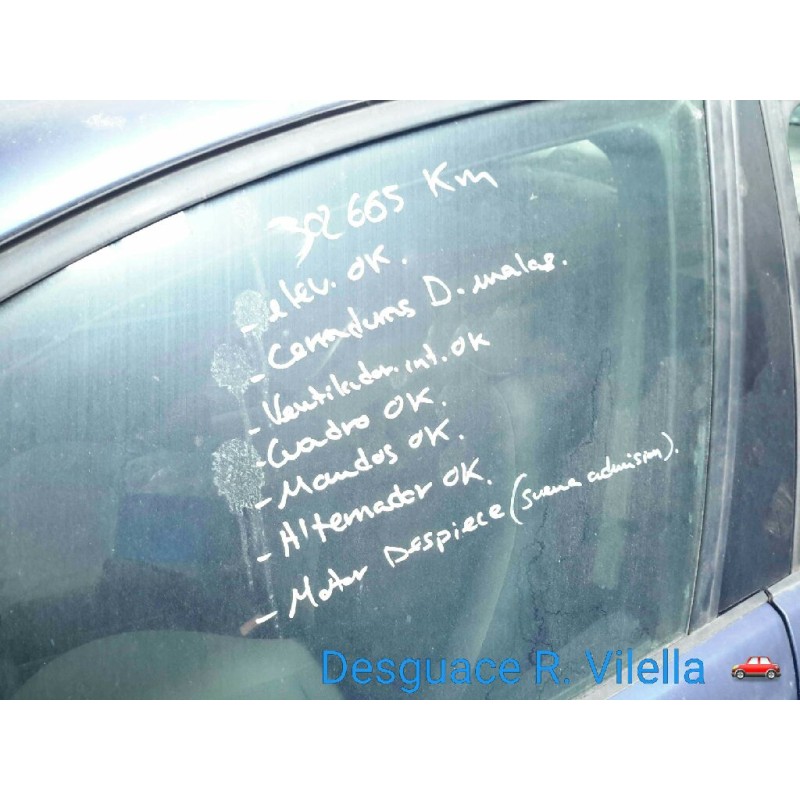 302665 Km
- elev. OK.
- Cerraduras D. malas.
- Ventilador int. OK
- Cuadro OK.
- Mandos OK.
- Alternador OK.
- Motor Despiece (suena admision).
Desguace R. Vilella